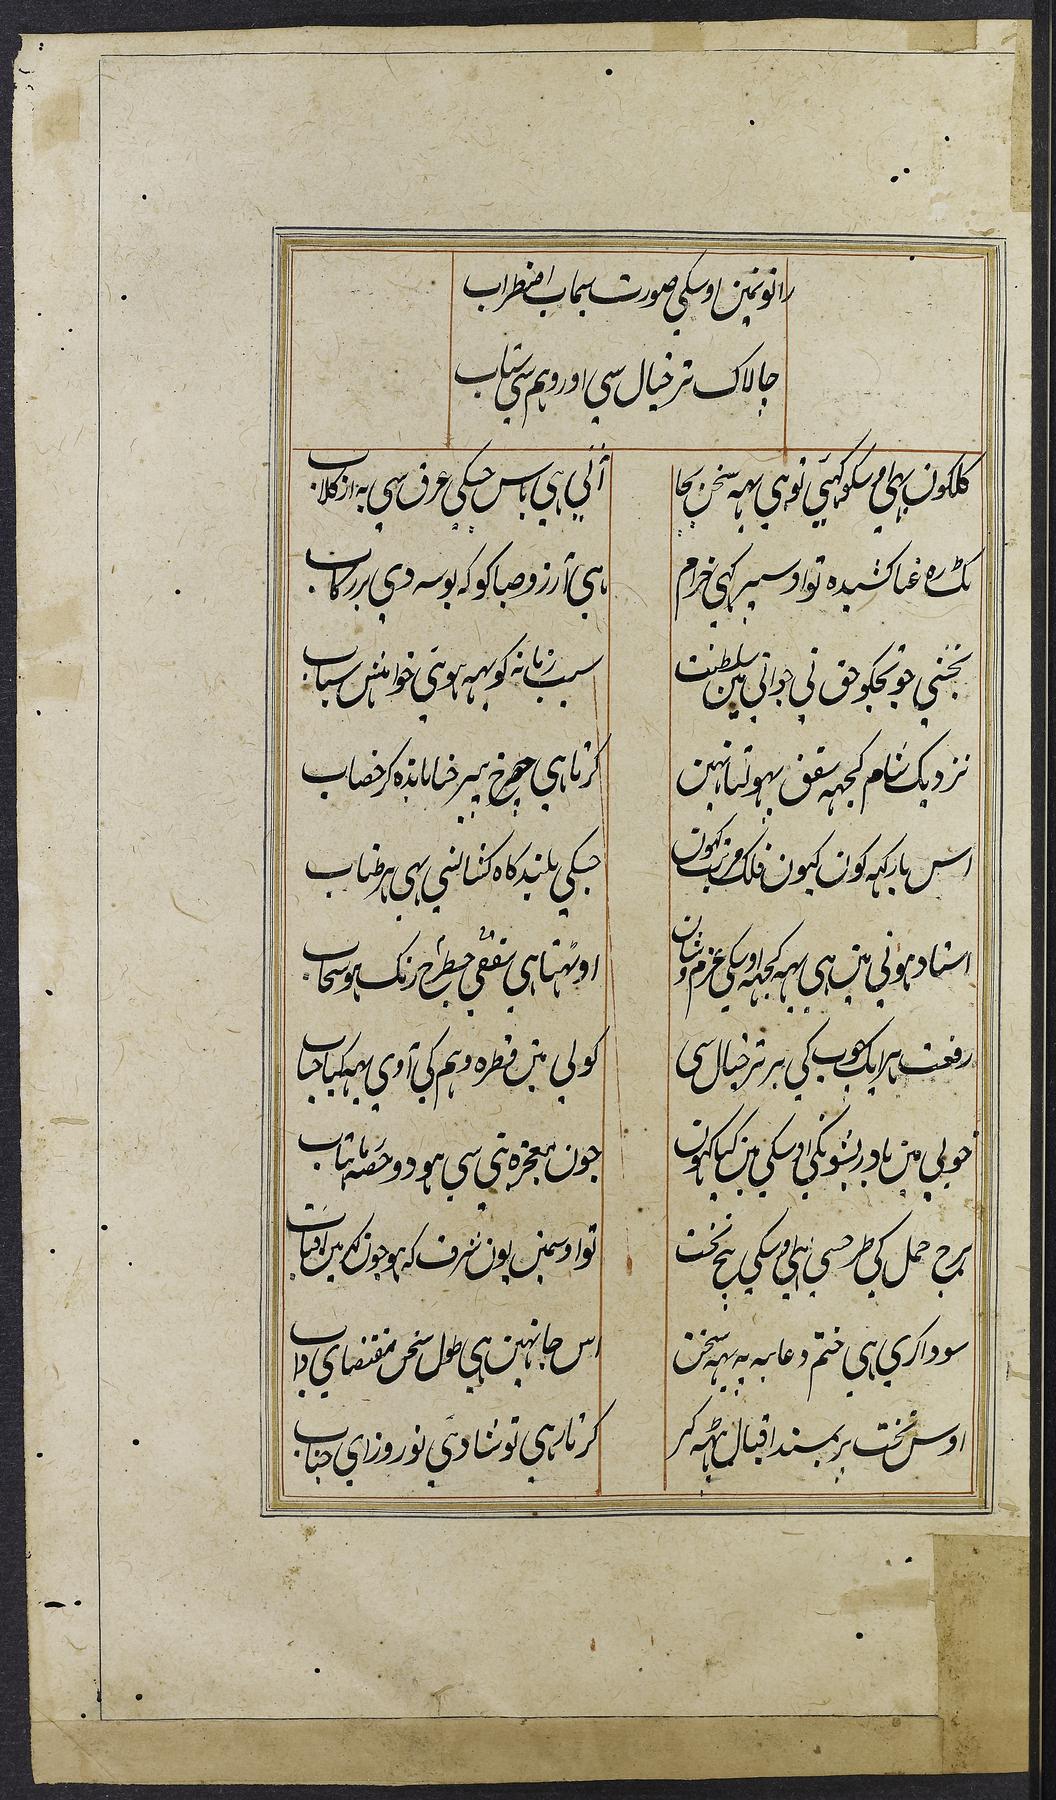 رانونمین اوسکی صورت سیماب اضطراب
چالاک تر خیال سی اور وہم سی شتاب
کلکون ہی اوسکو کہیی تو ہی یہہ سخن بجا
آتی ہی باس جسکی عرق سی بہ از کلاب
تک رہ عنا کشیدہ تو اوسپر کہی خرام
ہی آرزو صبا کو کہ بوسہ دی بر رکاب
بخشی جو تجکو حق نی جوانی مین سلطنت
سب زمانہ کو یہہ ہوئی خواہش شباب
نزدیک شام کجہہ شفق پہولتا نہین
کرتا ہی چرخ پیر حنا باندہ کر خضاب
اس بارکہہ کون کیون فلک مرتبت کہون
جسکی بلند کاہ کشان سی بہی ہر طناب
استاد ہونی مین ہی یہہ کجہہ اوسکی عزم و شان
اوٹہتا ہی شفقی جسطرح رنک ہو سحاب
رفعت ہر ایک چوب کی برتر خیال سی
کولی مین قطرہ وہم کی آوی یہہ کیا حباب
خوبی مین بادریشونکی اوسکی مین کیا کہون
جون معجزہ نبی سی ہو دو حصہ ماہتاب
برج حمل کی طرحسی ہی اوسکی بیچ تخت
تو اوسمین یون شرف کہ ہو جون مین آفتاب
سودا کری ہی ختم دعایہ پہ یہہ سخن
اس جا نہین ہی طول سخن مقتضای داب
اوس تخت پر بمسند اقبال بیٹہہ کر
کرتا رہی تو شادی نوروز ای جناب